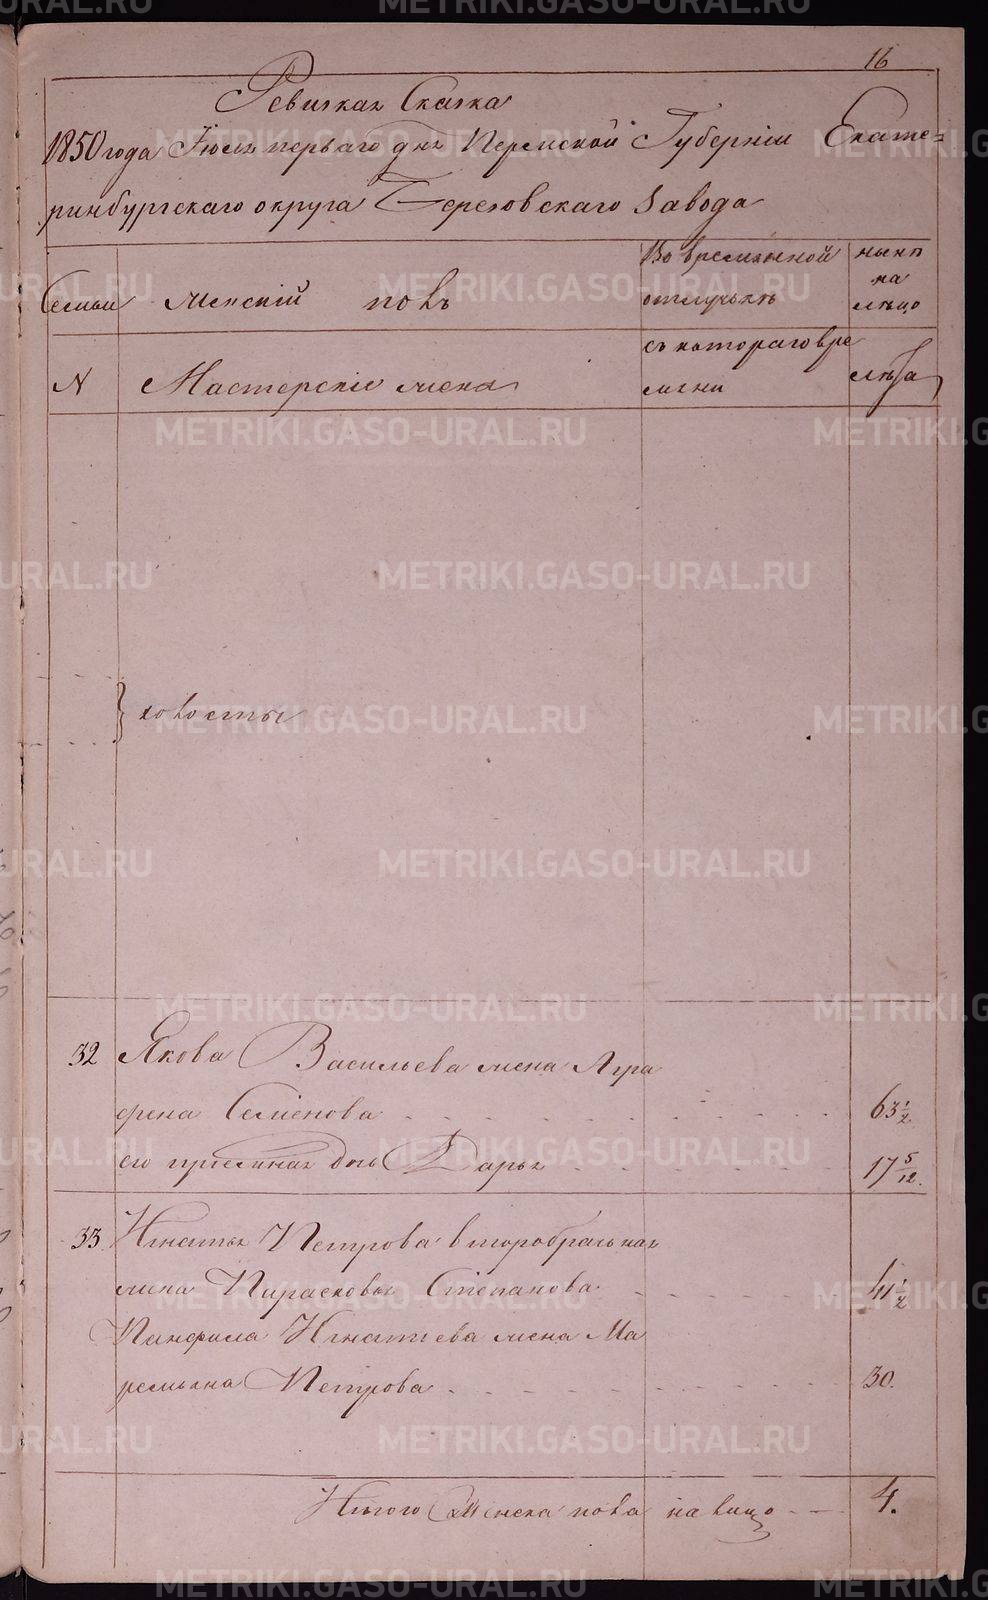 16
Ревизкая Сказка
1850 года Июля перваго дня Пермской Губернiи Екате=
ринбургскаго округа Березовскаго Завода
Семьи женскiй полъ
Во временной
отлучкѣ
нынѣ
на
лицо
N Мастерскiе жена
съ котораго вре
мени
лѣта
холосты
32 Якова Васильева жена Агра
фена Семiонова 63 1/2
его приемная дочь Дарья 17 5/12.
33. Игнатья Петрова второбрачная
жена Парасковья Степанова 41 1/2
Панфила Игнатiева жена Ма
ремьяна Петрова 30.
Итого женска пола на лицо 4.
METRIKI.GASO-URAL.RU